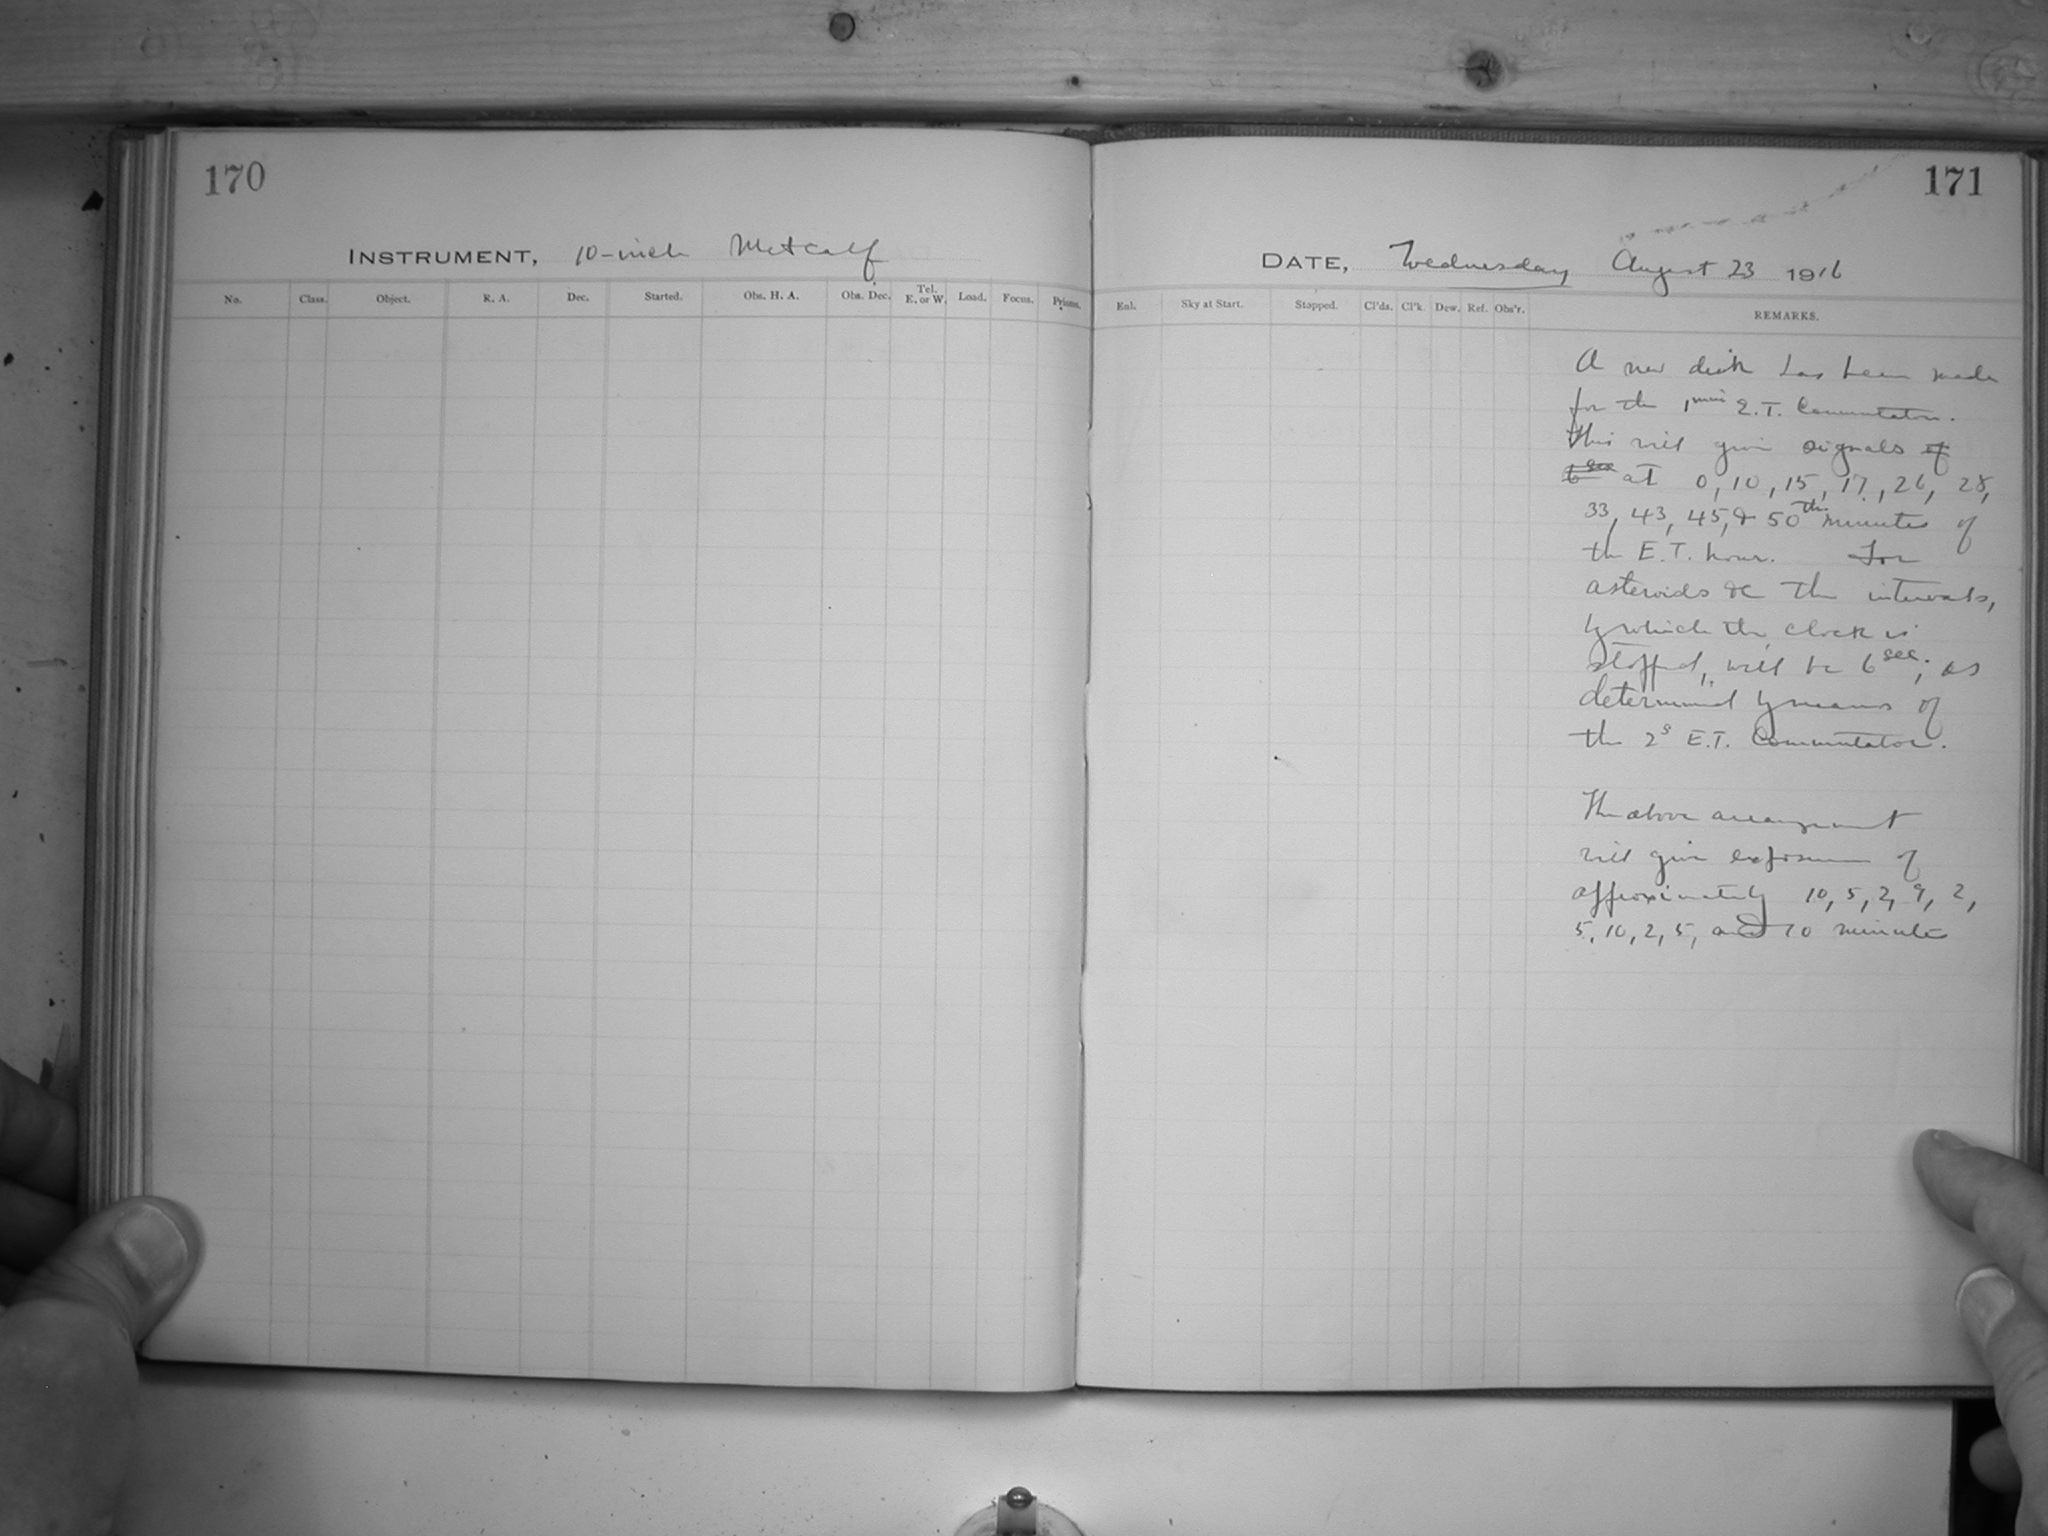 170
INSTRUMENT, 10-inch Metcalf
No. Class. Object. R. A. Dec. Started. Obs. H. A. Obs. Dec. Tel. E. or W. Load. Focus. Prisms.
171
DATE, Wednesday August 23 1916
Enl. Sky at Start. Stopped. Cl'ds. Cl'k. Dew. Ref. Obs'r. REMARKS.
A new disk has been made
for the 1min E.T. Commutator.
This will give signals of
6sec at 0, 10, 15, 17, 26, 28,
33, 43, 45, & 50th minutes of
the E.T. hour. For
asteroids &c the intervals,
by which the clock is
stopped, will be 6sec., as
determined by means of
the 2s E.T. Commutator.
The above arrangement
will give exposures of
approximately 10, 5, 2, 9, 2,
5, 10, 2, 5, and 10 minutes